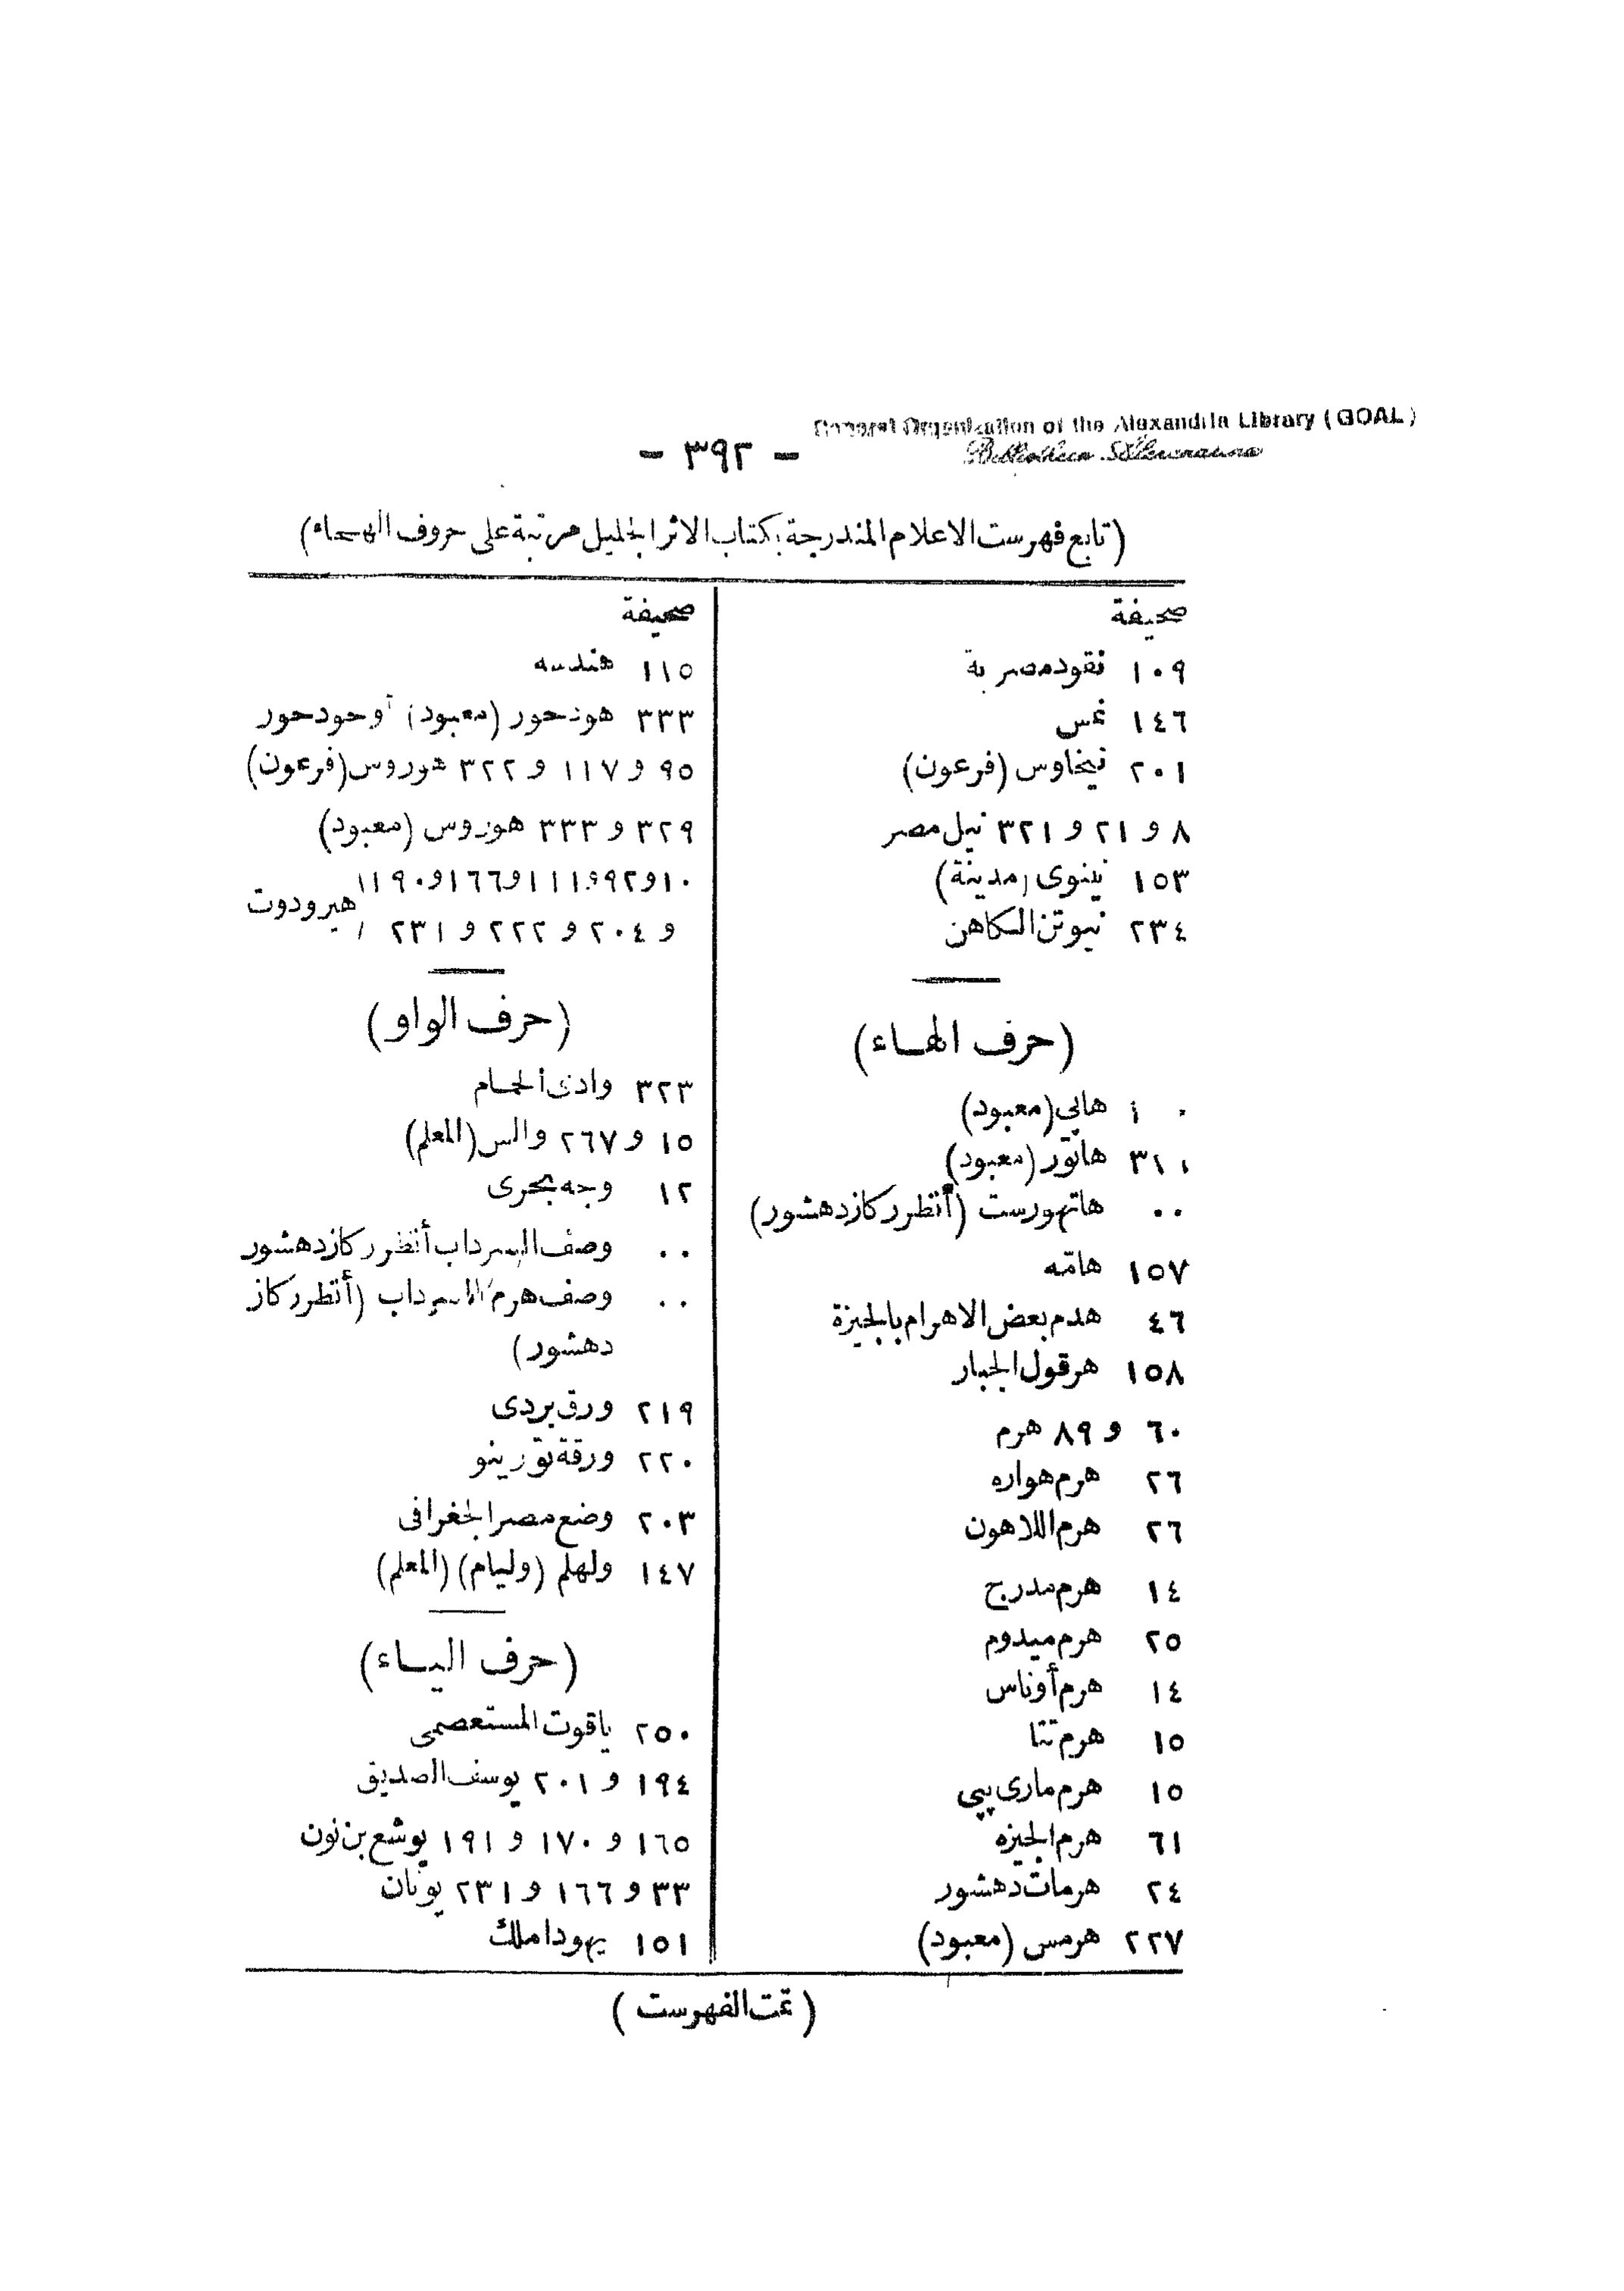 General Organization of the Alexandria Library (GOAL)
Bibliotheca Alexandrina
- ٣٩٢ -
(تابع فهرست الاعلام المندرجة بكتاب الاثر الجليل مرتبة على حروف الهجاء)
صحيفة
١٠٩ نقود مصرية
١٤٦ نمس
٢٠١ نيخاوس (فرعون)
٨ و ٢١ و ٣٢١ نيل مصر
١٥٣ نينوى (مدينة)
٢٣٤ نيوتن الكاهن
(حرف الهاء)
هابي (معبود)
٣١١ هاتور (معبود)
٠٠ هاتهورست (أنظر ركاز دهشور)
١٥٧ هامّه
٤٦ هدم بعض الاهرام بالجيزة
١٥٨ هرقول الجبار
٦٠ و ٨٩ هرم
٢٦ هرم هواره
٢٦ هرم اللاهون
١٤ هرم مدرج
٢٥ هرم ميدوم
١٤ هرم أوناس
١٥ هرم تتا
١٥ هرم مارى پپى
٦١ هرم الجيزه
٢٤ هرمات دهشور
٢٢٧ هرمس (معبود)
صحيفة
١١٥ هندسه
٣٣٣ هودحور (معبود) أوحودحور
٩٥ و ١١٧ و ٣٢٢ هوروس (فرعون)
٣٢٩ و ٣٣٣ هوروس (معبود)
١٠ و ٩٢ و ١١١ و ١٦٦ و ١٩٠
هيرودوت
و ٢٠٤ و ٢٢٢ و ٢٣١
(حرف الواو)
٣٢٣ وادى الحمام
١٥ و ٢٦٧ والس (المعلم)
١٢ وجه بحرى
٠٠ وصف السرداب أنظر ركاز دهشور
٠٠ وصف هرم السرداب (أنظر ركاز
دهشور)
٢١٩ ورق بردى
٢٢٠ ورقة تورينو
٢٠٣ وضع مصر الجغرافى
١٤٧ ولهلم (وليام) (المعلم)
(حرف الياء)
٢٥٠ ياقوت المستعصمى
١٩٤ و ٢٠١ يوسف الصديق
١٦٥ و ١٧٠ و ١٩١ يوشع بن نون
٣٣ و ١٦٦ و ٢٣١ يونان
١٥١ يهودا ملك
(تمت الفهرست)